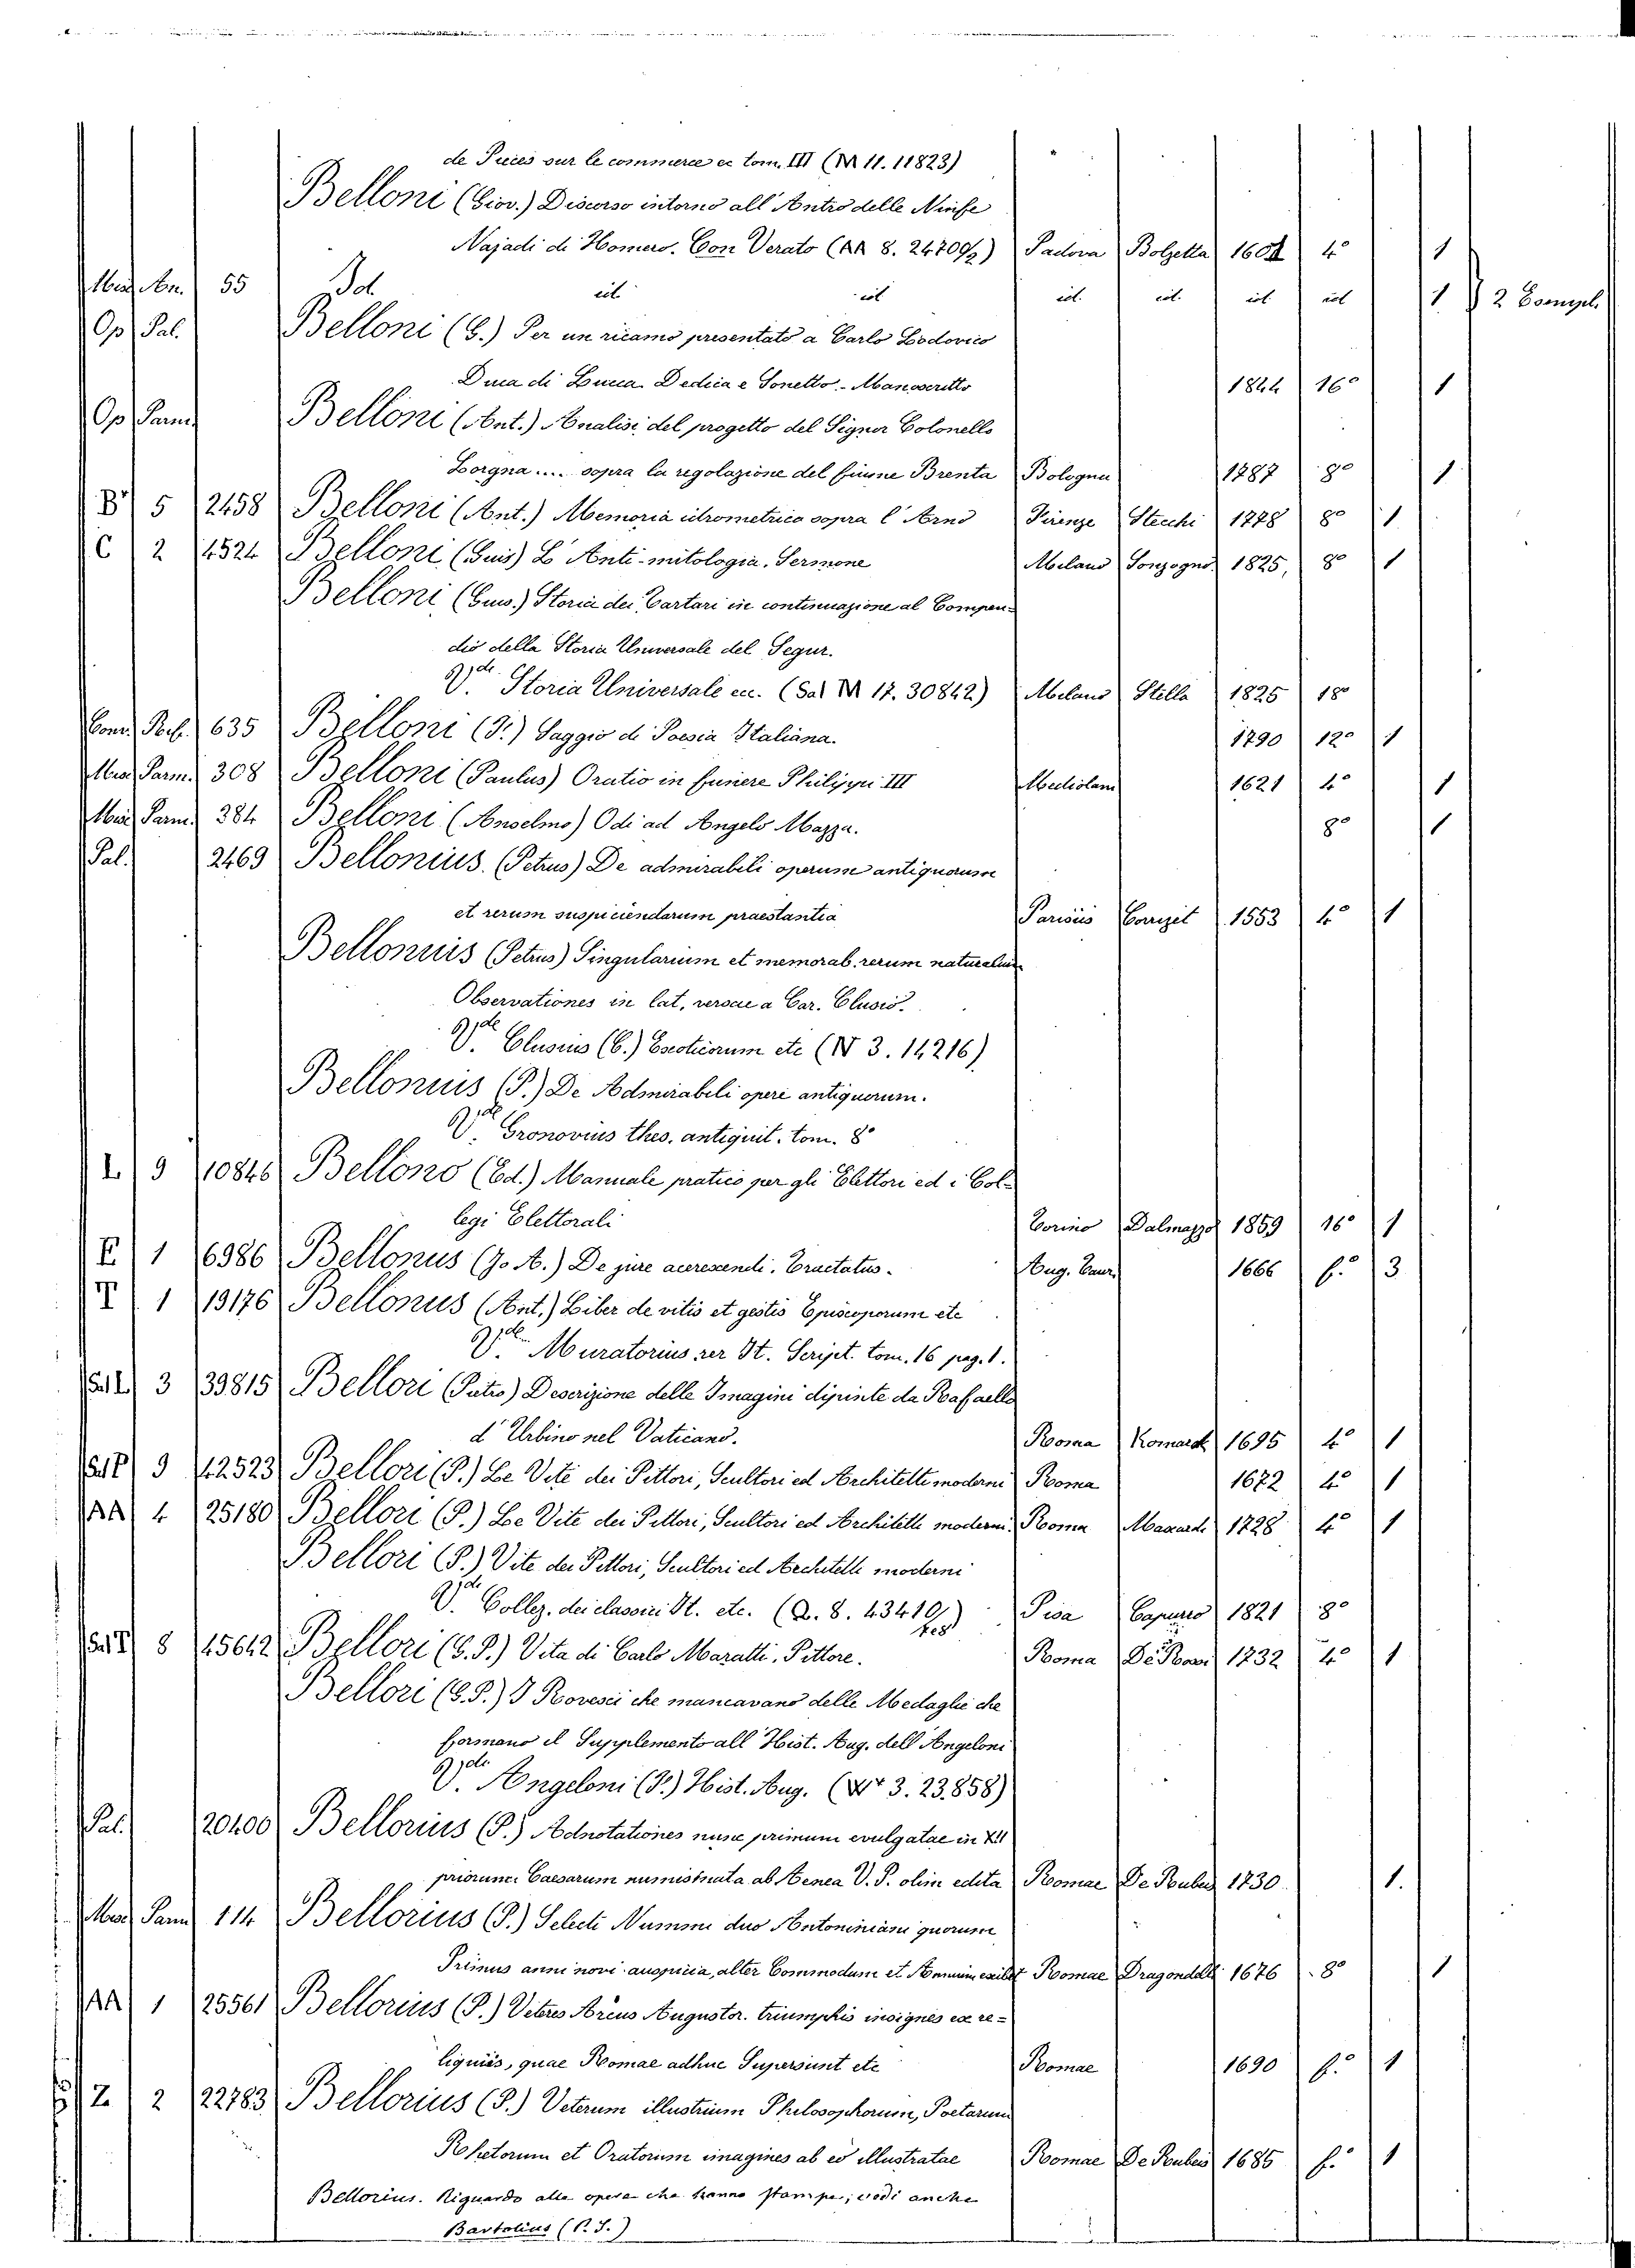 de Pieces sur le commerce ec tom. III (M 11. 11823)
Belloni (Giov.) Discorso intorno all'Antro delle Ninfe
Najadi di Homero. Con Verato (AA 8. 24709/2) Padova Bolzetta 1601 4° 1
Misc. An. 55 Id. id. id. id. id. id. id. 1 } 2 Compl.
Op. Pal. Belloni (G.) Per un ricamo presentato a Carlo Lodovico
Duca di Lucca. Dedica e Sonetto. - Manoscritto 1844 16° 1
Op. Parm. Belloni (Ant.) Analisi del progetto del Signor Colonello
Lorgna .... sopra la regolazione del fiume Brenta Bologna 1787 8° 1
B* 5 2458 Belloni (Ant.) Memoria idrometrica sopra l'Arno Firenze Stecchi 1778 8° 1
C 2 4524 Belloni (Guis) L'Anti-mitologia. Sermone Milano Sonzogno 1825, 8° 1
Belloni (Guis.) Storia dei Tartari in continuazione al Compen-
dio della Storia Universale del Segur.
V.de Storia Universale ec. (Sal M 17. 30842) Milano Stella 1825 18°
Conv. Ref. 635 Belloni (F.) Saggio di Poesia Italiana. 1790 12° 1
Misc. Parm. 308 Belloni (Paulus) Oratio in funere Philippi III Mediolani 1621 4° 1
Misc. Parm. 384 Belloni (Anselmo) Odi ad Angelo Mazza. 8° 1
Pal. 2469 Bellonius (Petrus) De admirabili operum antiquorum
et rerum suspiciendarum praestantia Parisiis Corrozet 1553 4° 1
Bellonius (Petrus) Singularium et memorab. rerum naturalium
Observationes in lat. versae a Car. Clusio.
V.de Clusius (C.) Exoticorum etc (N 3. 14216)
Bellonius (P.) De Admirabili opere antiquorum.
V.de Gronovius thes. antiquit. tom. 8°
L 9 10846 Bellono (Ed.) Manuale pratico per gli Elettori ed i Col-
legi Elettorali Torino Dalmazzo 1859 16° 1
E 1 6986 Bellonus (Jo. A.) De jure accrescendi. Tractatus. Aug. Taur. 1666 f.° 3
T 1 19176 Bellonus (Ant.) Liber de vitis et gestis Episcoporum etc
V.de Muratorius rer It. Script. tom. 16 pag. 1.
Sal L 3 39815 Bellori (Pietro) Descrizione delle Imagini dipinte da Raffaello
d'Urbino nel Vaticano. Roma Komarek 1695 4° 1
Sal P 9 42523 Bellori (P.) Le Vite dei Pittori, Scultori ed Architetti moderni Roma 1672 4° 1
AA 4 25180 Bellori (P.) Le Vite dei Pittori, Scultori ed Architetti moderni. Roma Mascardi 1728 4° 1
Bellori (P.) Vite dei Pittori, Scultori ed Architetti moderni
V.de Collez. dei classici It. etc. (Q. 8. 43410/) Pisa Capurro 1821 8°
Sal T 8 45642 Bellori (G. P.) Vita di Carlo Maratti. Pittore. Roma De Rossi 1732 4° 1
Bellori (G. P.) I Rovesci che mancavano delle Medaglie che
formano il Supplemento all'Hist. Aug. dell'Angeloni
V.de Angeloni (F.) Hist. Aug. (3. 23.858)
Pal. 20400 Bellorius (P.) Adnotationes nunc primum evulgatae in XII
priorum Caesarum numismata ab Aenea V. P. olim edita Romae De Rubeis 1730 1.
Misc. Parm. 114 Bellorius (P.) Selecti Nummi duo Antoniniani quorum
Primus anni novi auspicia, alter Commodum et Annium exibet Romae Dragondelli 1676 8° 1
AA 1 25561 Bellorius (P.) Veteres Arcus Augustor. triumphis insignes ex re-
liquiis, quae Romae adhuc Supersunt etc Romae 1690 f.° 1
Z 2 22783 Bellorius (P.) Veterum illustrium Philosophorum, Poetarum
Rhetorum et Oratorum imagines ab eo illustratae Romae De Rubeis 1685 f.° 1
Bellorius. Riguardo alle opere che hanno stampe, vedi anche
Bartolius (P. S.)